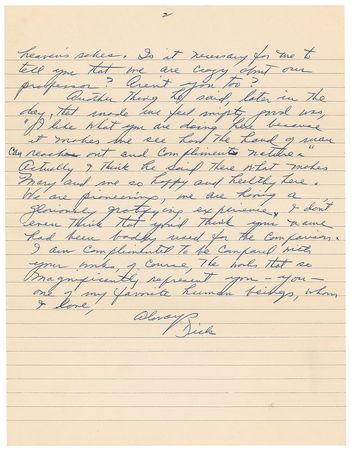 2
heaven's sakes. Is it necessary for me to
tell you that we are crazy about our
professor? Aren't you too?
Another thing he said, later in the
day, that made me feel mighty good was,
"I like what you are doing here because
it makes me see how the hand of man
can reach out and compliment nature."
Actually I think he said there what makes
Mary and me so happy and healthy here.
We are pioneering, we are having a
gloriously gratifying experience. I don't
even think that you'd think your name
had been badly used for the comparison.
I am complimented to be compared with
your works, of course, the works that so
magnificently represent you - you -
one of my favorite human beings, whom
I love,
Always
Dick